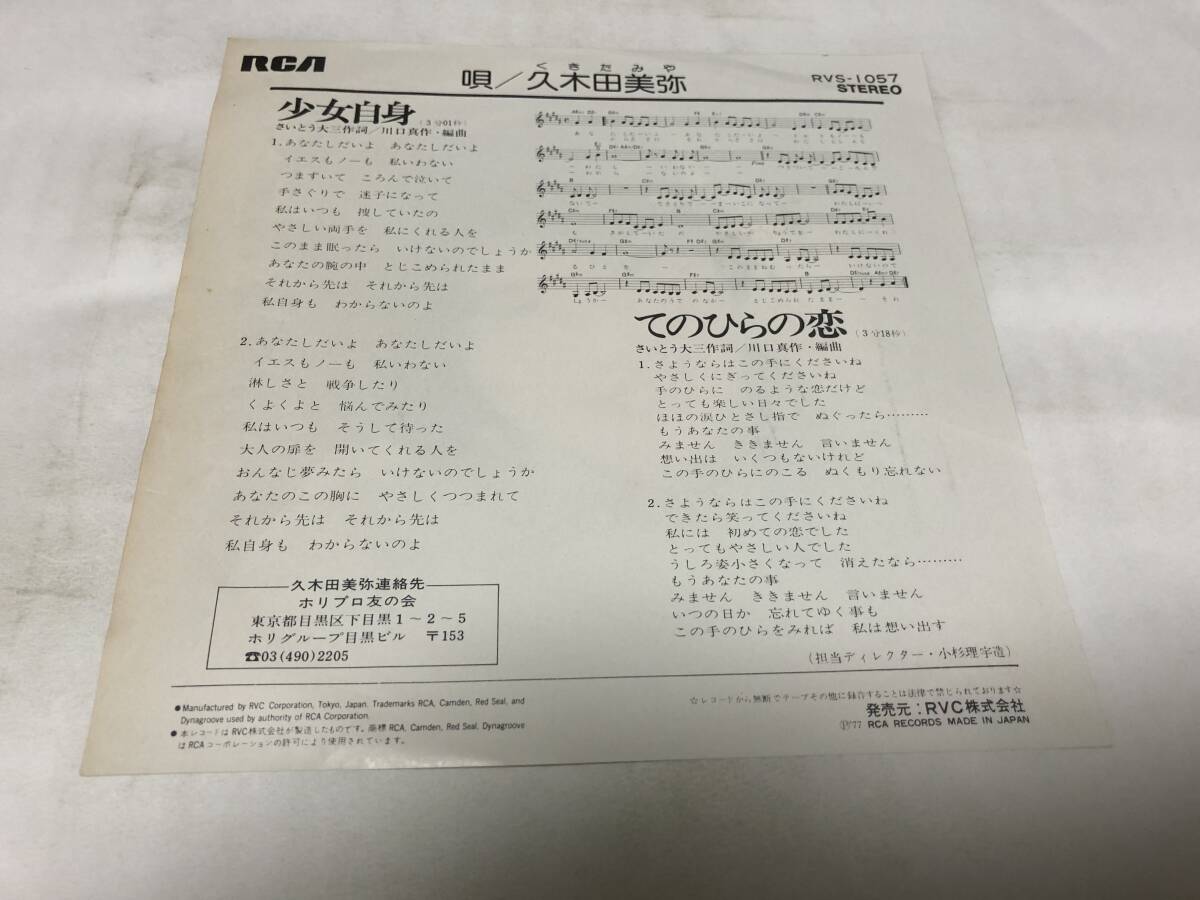 RCA
くきたみや
唄／久木田美弥
RVS-1057
STEREO
少女自身
(3分01秒)
さいとう大三作詞／川口真作・編曲
1.あなたしだいよ　あなたしだいよ
イエスもノーも　私いわない
つまずいて　ころんで泣いて
手さぐりで　迷子になって
私はいつも　捜していたの
やさしい両手を　私にくれる人を
このまま眠ったら　いけないのでしょうか
あなたの腕の中　とじこめられたまま
それから先は　それから先は
私自身も　わからないのよ
2.あなたしだいよ　あなたしだいよ
イエスもノーも　私いわない
淋しさと　戦争したり
くよくよと　悩んでみたり
私はいつも　そうして待った
大人の扉を　開いてくれる人を
おんなじ夢みたら　いけないのでしょうか
あなたのこの胸に　やさしくつつまれて
それから先は　それから先は
私自身も　わからないのよ
久木田美弥連絡先
ホリプロ友の会
東京都目黒区下目黒1～2～5
ホリグループ目黒ビル　〒153
☎03(490)2205
てのひらの恋
(3分18秒)
さいとう大三作詞／川口真作・編曲
1.さようならはこの手にくださいね
やさしくにぎってくださいね
手のひらに　のるような恋だけど
とっても楽しい日々でした
ほほの涙ひとさし指で　ぬぐったら………
もうあなたの事
みません　ききません　言いません
想い出は　いくつもないけれど
この手のひらにのこる　ぬくもり忘れない
2.さようならはこの手にくださいね
できたら笑ってくださいね
私には　初めての恋でした
とってもやさしい人でした
うしろ姿小さくなって　消えたなら………
もうあなたの事
みません　ききません　言いません
いつの日か　忘れてゆく事も
この手のひらをみれば　私は想い出す
(担当ディレクター・小杉理宇造)
●Manufactured by RVC Corporation, Tokyo, Japan. Trademarks RCA, Camden, Red Seal, and
Dynagroove used by authority of RCA Corporation.
●本レコードはRVC株式会社が製造したものです。商標RCA, Camden, Red Seal, Dynagroove
はRCAコーポレーションの許可により使用されています。
☆レコードから無断でテープその他に録音することは法律で禁じられております☆
発売元：RVC株式会社
Ⓟ'77 RCA RECORDS MADE IN JAPAN